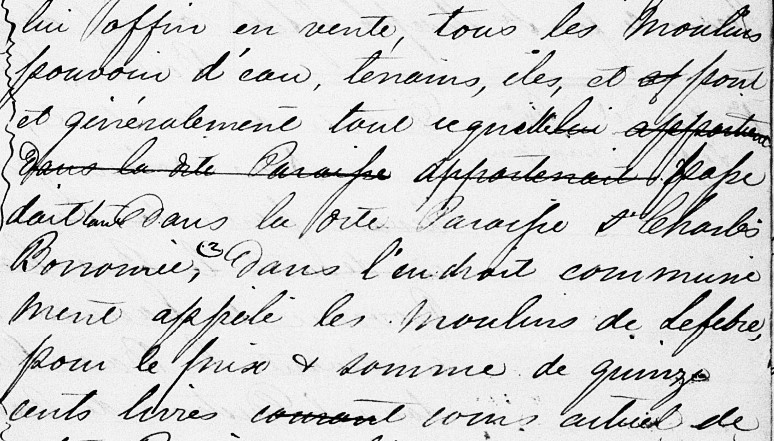 lui offrir en vente, tous les Moulins
pouvoir d'eau, terrains, iles, et pont
et généralement tout ce qu'elle lui appartient
dans la dte Paroisse appartenait possé
dait tant dans la dte Paroisse St Charles
Borromée, (2) dans l'endroit commune
ment appelé les Moulins de Lefebre,
pour le prix & somme de quinze
cents livres courant cours actuel de